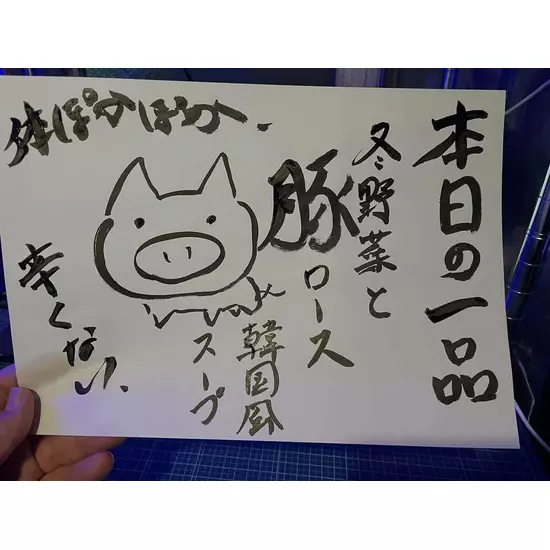 本日の一品
冬野菜と
豚ロース
韓国風
スープ
体ぽかぽか
辛くない